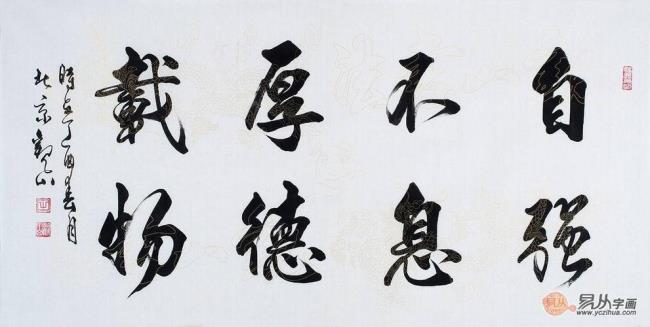 自强
不息
厚德
载物
時在丁酉年春月
北京観山
易从字画
www.yczihua.com